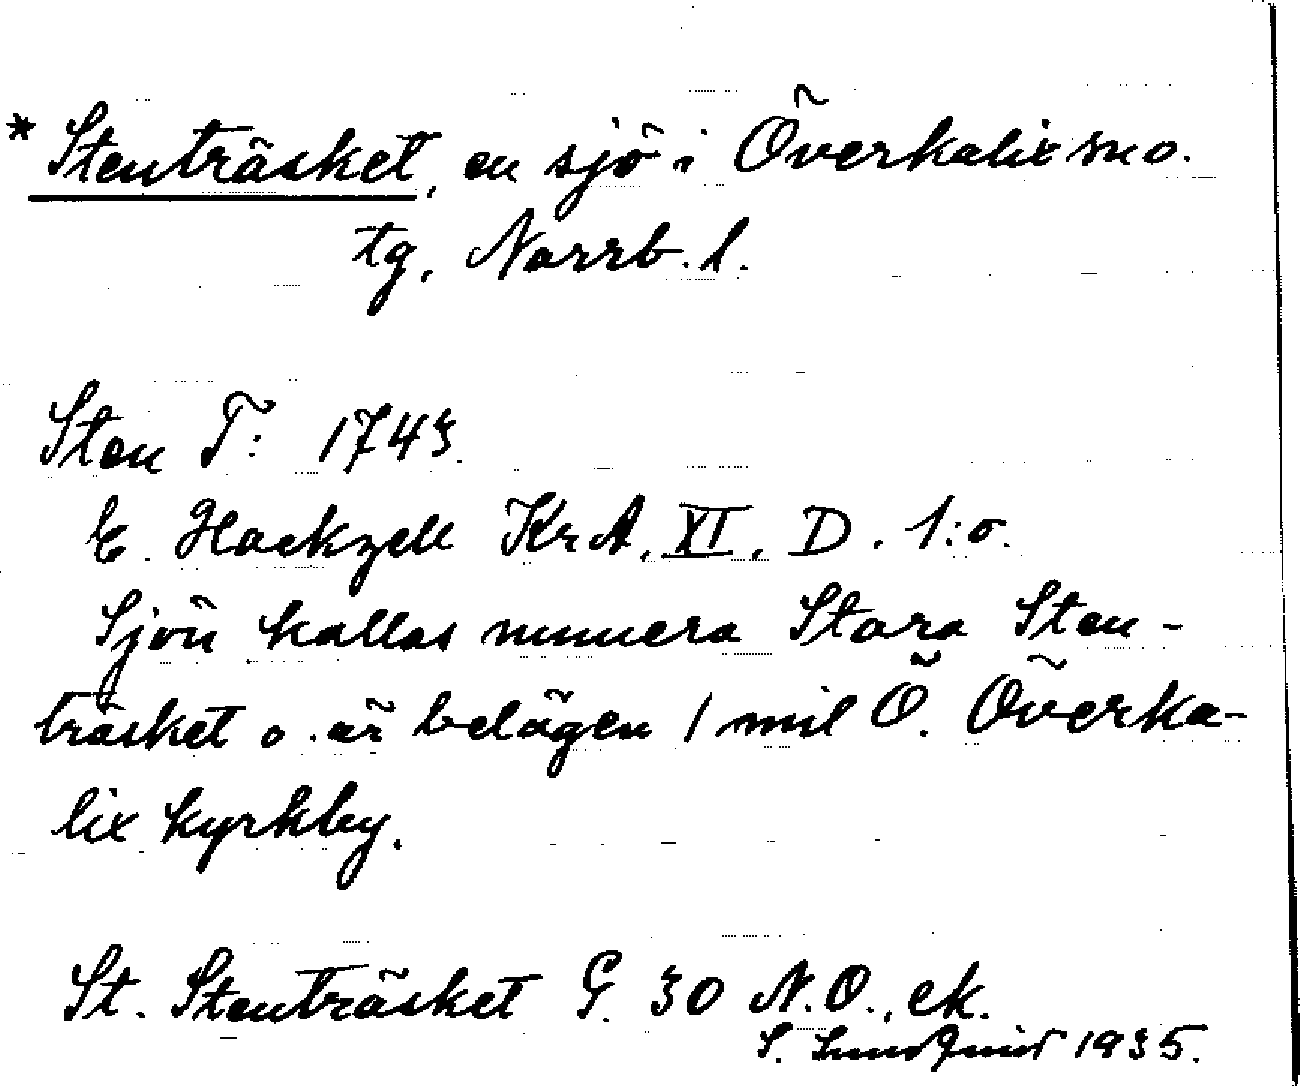 * Stenträsket, en sjö i Överkalix sn o.
tg, Norrb. l.
Sten T: 1743
E. Hackzell KrA, XI, D. 1:o.
Sjön kallas numera Stora Sten-
träsket o. är belägen 1 mil Ö. Överka-
lix kyrkby.
St. Stenträsket G. 30 N.O., ek.
S. Lundquist 1935.